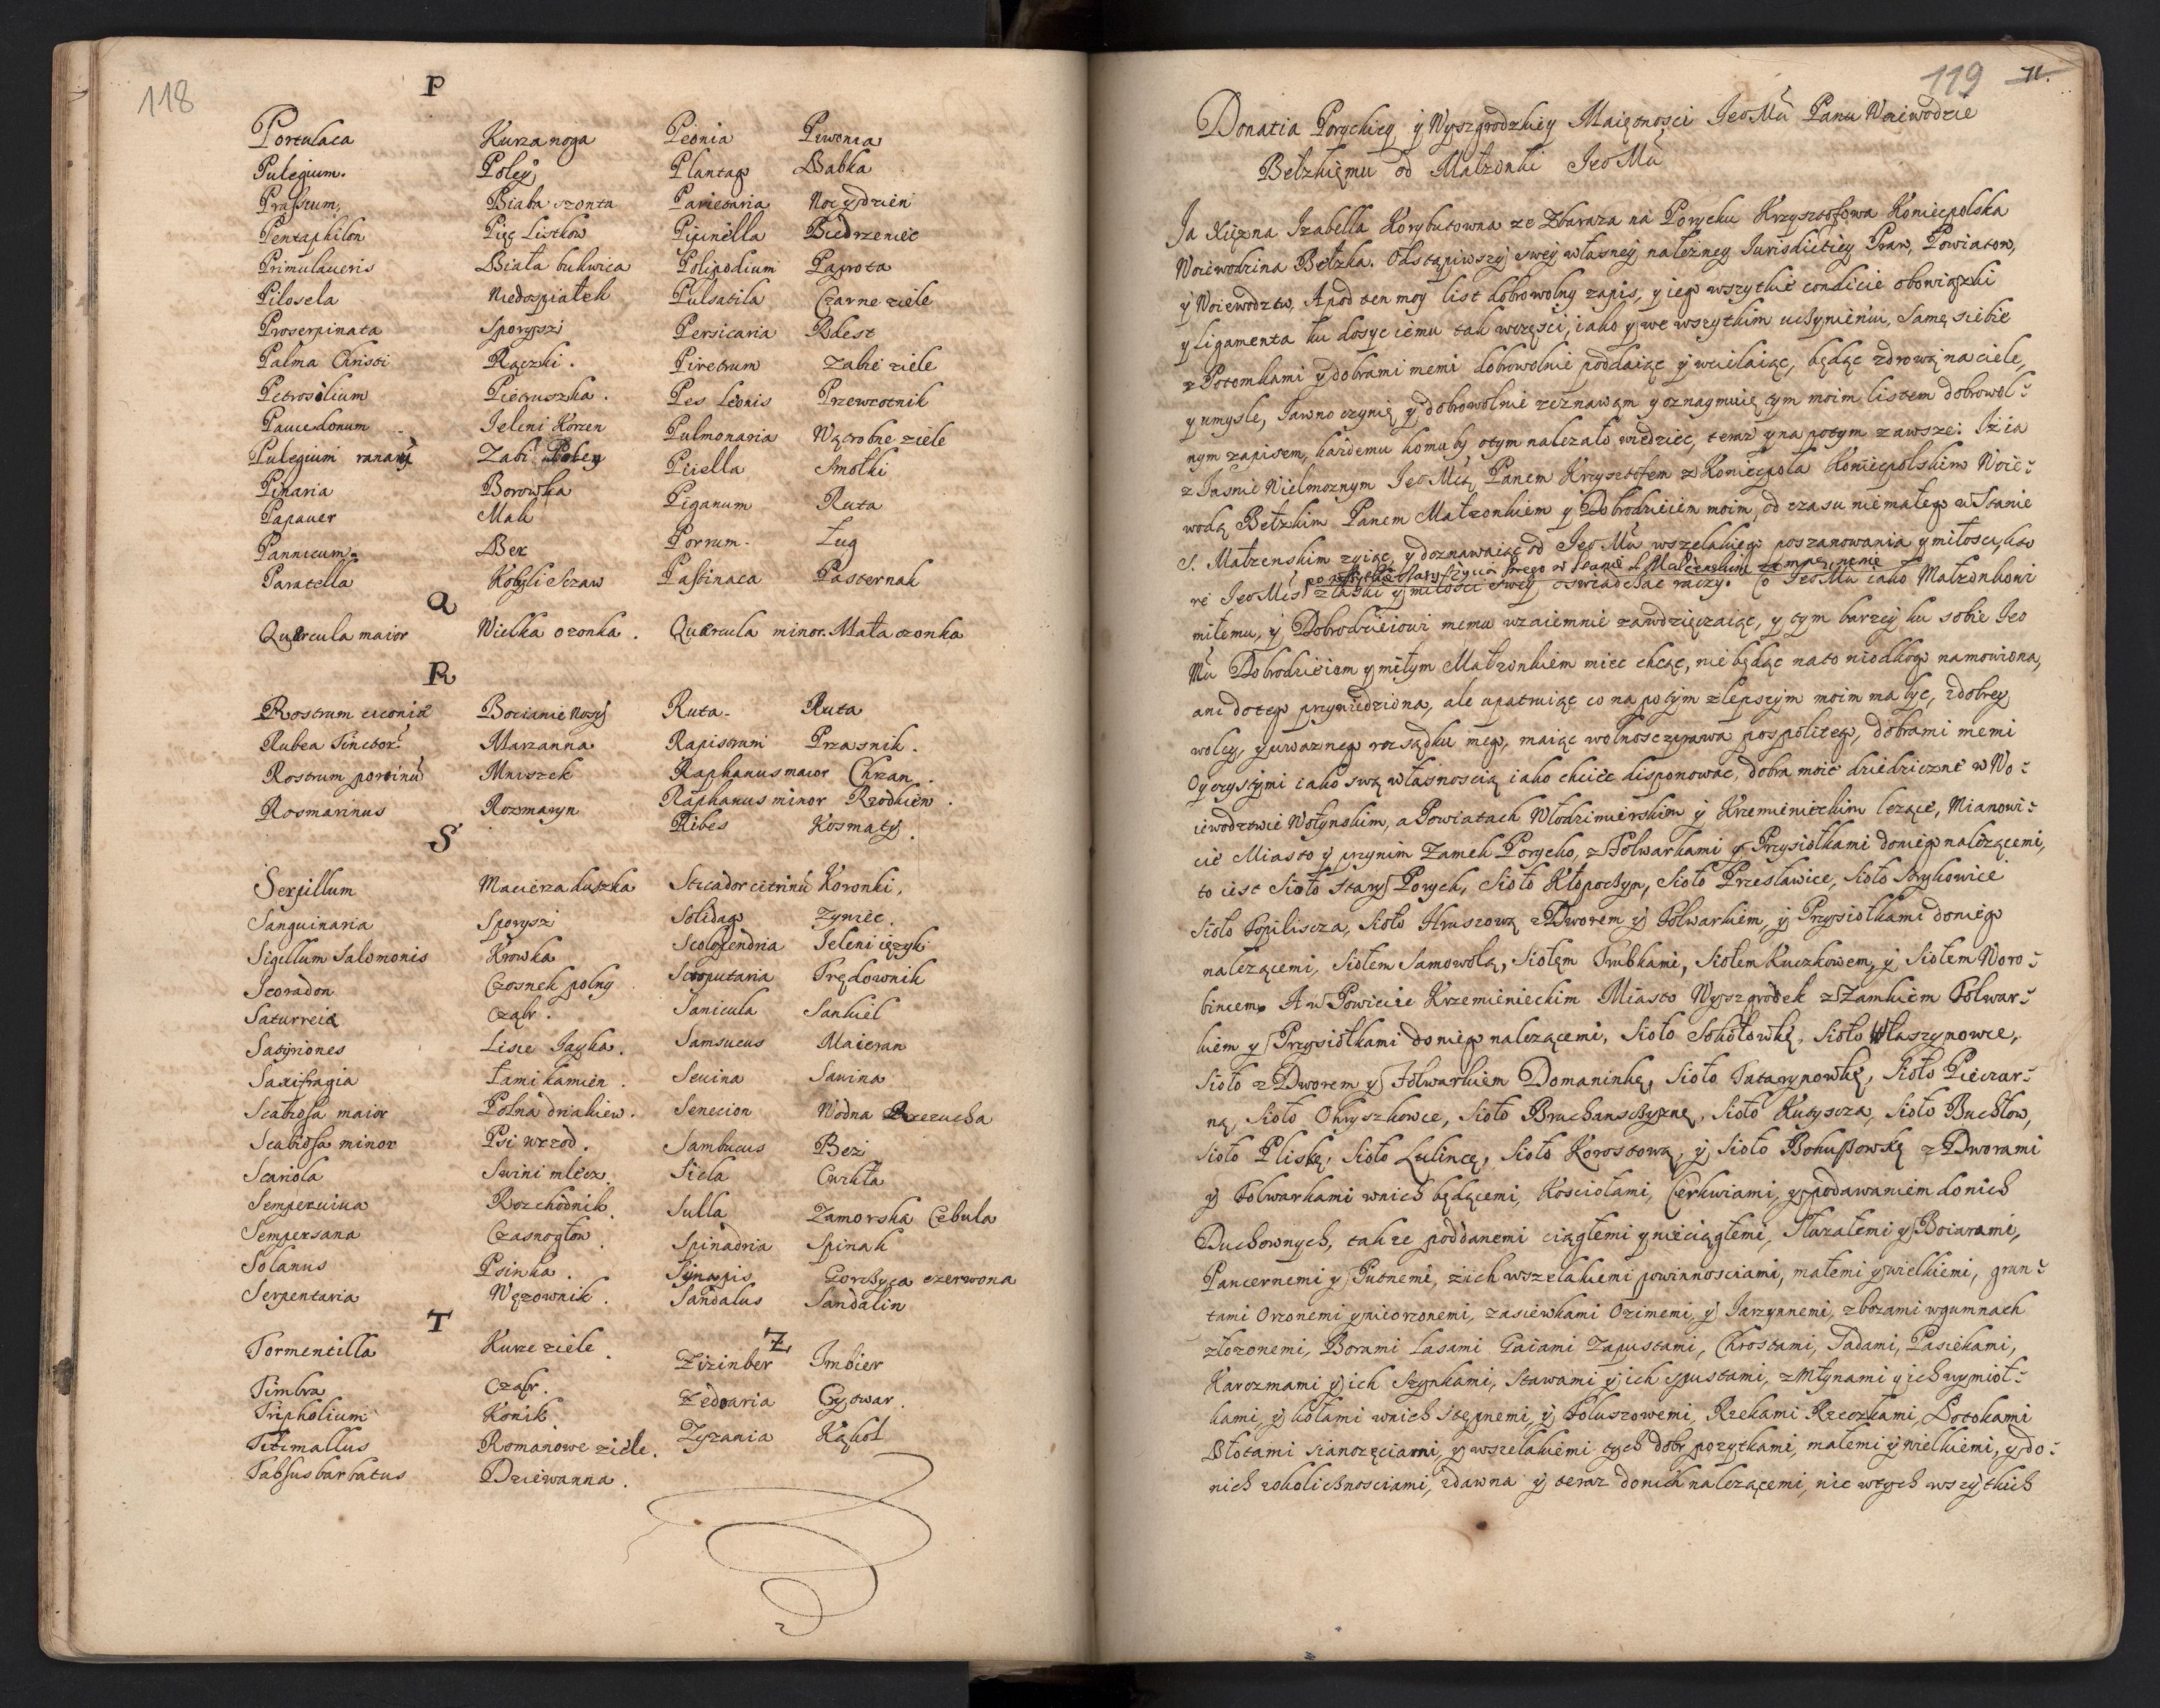 118
P
Portulaca Kurza noga Peonia Piwonia
Pulegium. Poley Plantago Babka
Prassium, Biała szonta Parietaria Noc y dzien
Pentaphilon Pięć Listkow Pipinella Biedrzeniec
Primulaueris Biała bukwica Polipodium Paprota
Pilosela Niedospiałek Pulsatila Czarne ziele
Proserpinata Sporyszi Persicaria Rdest
Palma Christi Rączki. Piretrum Zabie ziele
Petrosilium Pietruszka. Pes Leonis Przewrotnik
Paucedonum Jeleni Korzen Pulmonaria Wątrobne ziele
Pulegium ranarũ Zabi Poley Piiella Smołki
Pinaria Borowka Piganum Ruta
Papauer Mak Porrum. Ług
Pannicum. Ber Pastinaca Pasternak
Paratella Kobyli Sczaw
Q
Quercula maior Wielka ozonka. Quercula minor. Mała ozonka
R
Rostrum ciconiæ Bocianie Nosy Ruta Ruta
Rubea Tinctor. Marzanna Rapistrum Przasnik.
Rostrum porcinũ Mniszek Raphanus maior Chrzan.
Rosmarinus Rozmaryn Raphanus minor Rzodkiew.
Ribes Kosmaty.
S
Serpillum Macierza duszka Sticador citrinũ Koronki.
Sanguinaria Sporyszi Solidago Zywiec.
Sigillum Salomonis Krowka Scolopendria Jeleni ięzyk
Scoradon Czosnek polny Scroputaria Trędownik
Saturreia Cząbr. Sanicula Sankiel
Satyriones Lisie Jayka. Samsucus Maieran
Saxifragia Łami kamien. Seuina Sawina
Scabiosa maior Polna driakiew. Senecion Wodna Rzezucha
Scabiosa minor Psi wrzod. Sambucus Bez
Scariola Swini mlecz. Sicla Cwikła
Semperuiua Rozchodnik. Sulla Zamorska Cebula
Sempersana Czasnogłow. Spinadria Spinak
Solanus Psinka. Synapis Gorczyca czerwona
Serpentaria Wężownik. Sandalus Sandalin
T
Tormentilla Kurze ziele. Z
Timbra Cząbr. Zizinber Imbier
Tripholium Konik. Zedoaria Cytwar.
Titimallus Romanowe ziele. Zyzania Kąkol
Tabsus barbatus Dziewanna.
119 71.
Donatia Poryckiey y Wyszgrodzkiey Maiętnosci Jeo Mci Panu Woiewodzie
Bełzkiemu od Małżonki Jeo Mci
Ja Xiężna Izabella Korybutowna ze Zbaraza na Porycku Krzysztofowa Koniecpolska
Woiewodzina Bełzka. Odstąpiwszy swey własney należney Jurisdictiey Praw, Powiatow,
y Woiewodztw, A pod ten moy list dobrowolny zapis, y iego wszytkie condicie obowiązki
y ligamenta ku dosyc iemu tak w części, iako y we wszytkim uczynieniu, Samę siebie
z Potomkami y dobrami memi dobrowolnie poddaiąc y wcielaiąc, będąc zdrową na ciele,
y umysle, Jawno czynię y dobrowolnie zeznawam y oznaymuię tym moim listem dobrowol-
nym zapisem, każdemu komu by o tym należało wiedziec, teraz y na potym zawsze: Iż ia
z Jasnie Wielmożnym Jeo Mcią Panem Krzysztofem z Koniecpola Koniecpolskim Woie-
wodą Bełzkim Panem Małżonkiem y Dobrodzieiem moim, od czasu niemałego w Stanie
S. Małżenskim żyiąc, y doznawaiąc od Jeo Mci wszelakiego poszanowania y miłosci, kto
re Jeo Mść z łaski y miłosci swey oswiadczac raczy. Co Jeo Mci iako Małżonkowi
miłemu, y Dobrodzieiowi memu wzaiemnie zawdzięczaiąc, y tym barziey ku sobie Jeo
Mci Dobrodzieiem y miłym Małżonkiem miec chcąc, nie będąc na to niodkogo namowiona,
ani do tego przywiedziona, ale upatruiąc co na potym z lepszym moim ma być, z dobrey
woley, y uważnego rozsądku mego, maiąc wolnosc z prawa pospolitego, dobrami memi
Oyczystymi iako swą własnoscią iako chcieć disponowac, dobra moie dziedziczne w Wo-
iewodztwie Wołynskim, a Powiatach Włodzimierskim y Krzemienieckim leżące, Mianowi-
cie Miasto y przynim Zamek Porycko, z Folwarkami y Przysiołkami do niego należącemi,
to iest Sioło stary Poryck, Sioło Kłopoczyn, Sioło Przesławice, Sioło Strykowice
Sioło Topiliscza, Sioło Hruszową z Dworem y Folwarkiem, y Przysiołkami do niego
należącemi, Siołem Samowolą, Siołem Trubkami, Siołem Kuczkowem, y Siołem Woro-
bincem. A w Powiecie Krzemienieckim Miasto Wyszgrodek z Zamkiem Folwar-
kiem y Przysiołkami do niego należącemi, Sioło Sokołowkę, Sioło Właszynowce,
Sioło z Dworem y Folwarkiem Domaninkę, Sioło Tatarynowkę, Sioło Pieczar-
ną, Sioło Ohryszkowce, Sioło Bruchanszczyznę, Sioło Kutyscza, Sioło Buchłow,
Sioło Pliskę, Sioło Lulincę, Sioło Korostową, y Sioło Bohussowkę z Dworami
y Folwarkami w nich będącemi, Kosciołami, Cerkwiami, y podawaniem do nich
Duchownych, także poddanemi ciągłemi y nieciągłemi, Słuzałemi y Boiarami,
Pancernemi y Putnemi, z ich wszelakiemi powinnosciami, małemi y wielkiemi, grun-
tami Orzonemi y nieorzonemi, zasiewkami Ozimemi, y Jarzynnemi, zbożami w gumnach
złożonemi, Borami Lasami Gaiami Zapustami, Chrostami, Sadami, Pasiekami,
Karczmami y ich Szynkami, Stawami y ich spustami, z Młynami y ich wymioł-
kami, y kołami w nich stępnemi, y Foluszowemi, Rzekami Rzeczkami, Potokami
Błotami sianożęciami, y wszelakiemi tych dobr pożytkami, małemi y wielkiemi, y do-
nich z okolicznosciami, z dawna y teraz do nich należącemi, nic w tych wszytkich